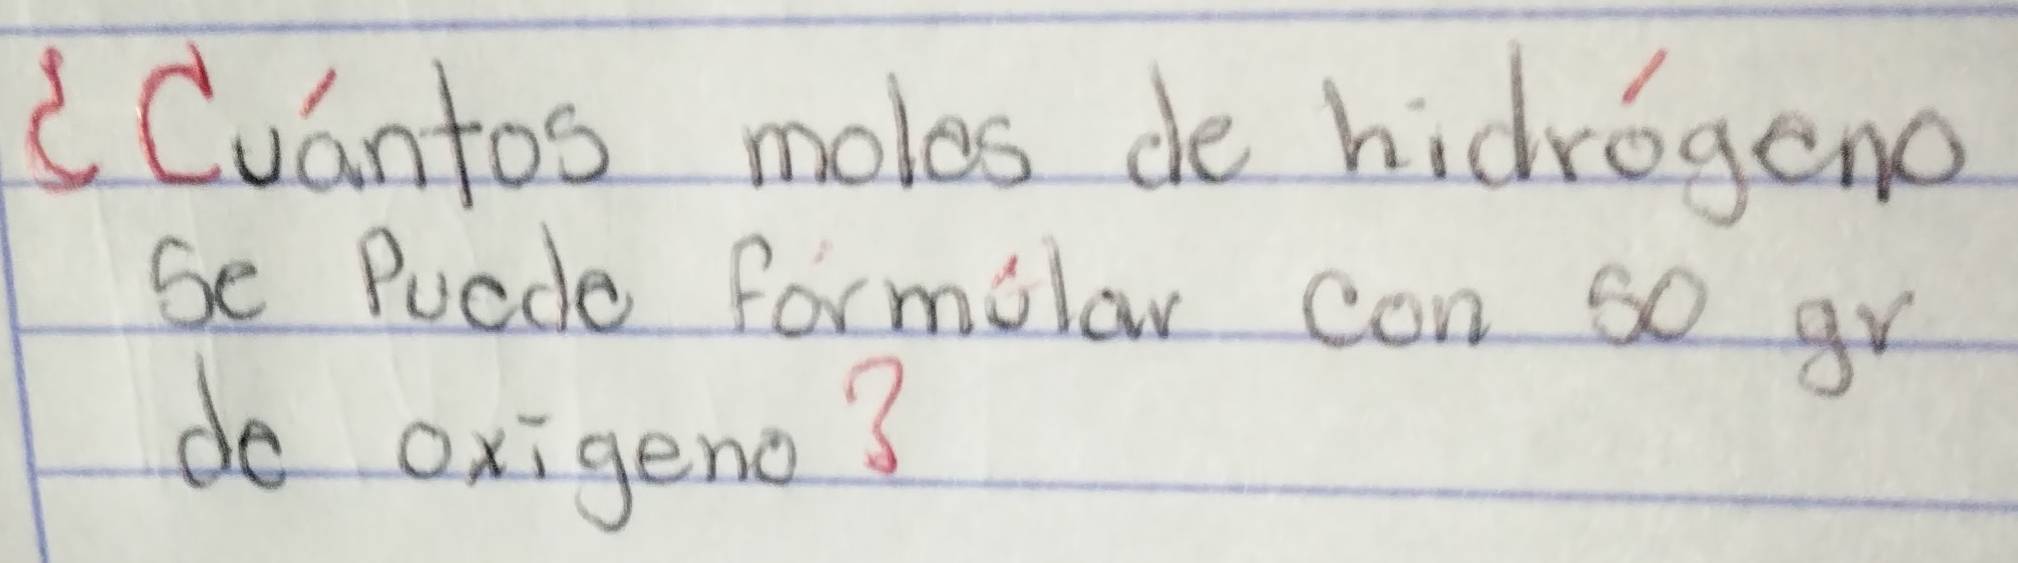 ¿Cuántos moles de hidrógeno
se Puede fórmúlar con 50 gr
de oxigeno?